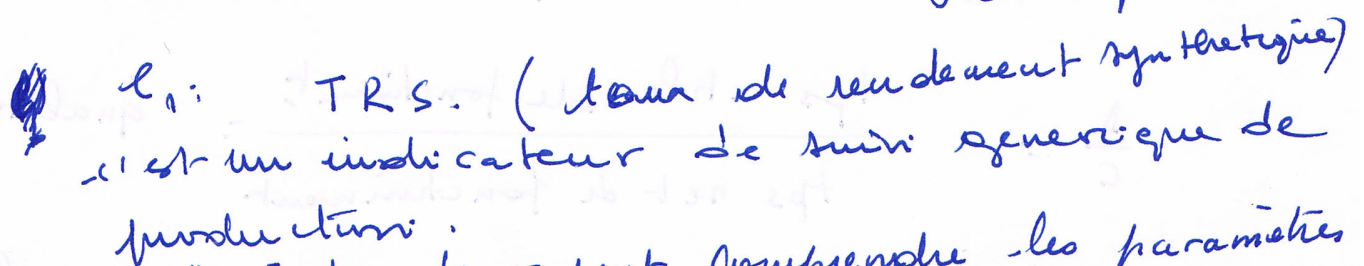 l1: TRS. (taux de rendement synthetique)
c'est un indicateur de suivi generique de
production.
comprendre les paramètres